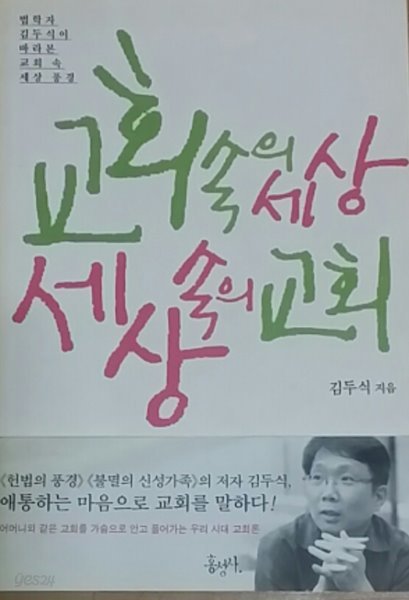 법학자
김두식이
바라본
교회 속
세상 풍경
교회 속의 세상
세상 속의 교회
김두식 지음
《헌법의 풍경》 《불멸의 신성가족》의 저자 김두식,
애통하는 마음으로 교회를 말하다!
어머니와 같은 교회를 가슴으로 안고 풀어가는 우리 시대 교회론
홍성사.
yes24